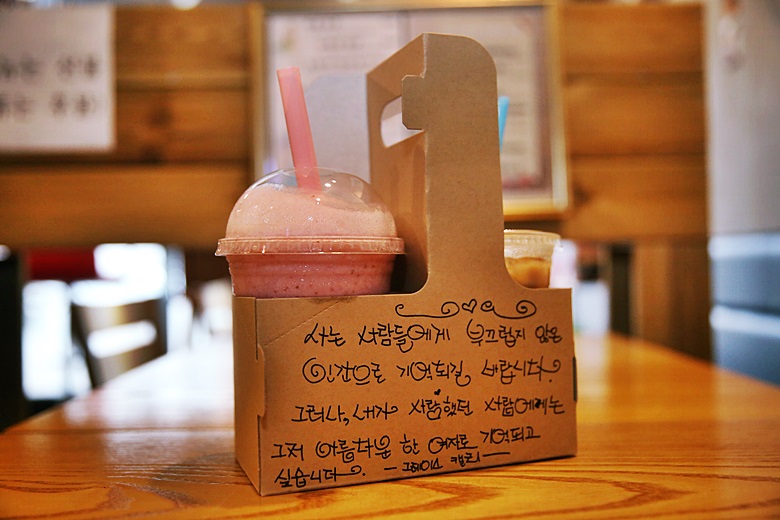 사는 사람들에게 부끄럽지 않은
인간으로 기억되길 바랍니다.
그러나, 내가 사랑했던 사람에게는
그저 아름다운 한 여자로 기억되고
싶습니다. - 그레이스 캘리 -